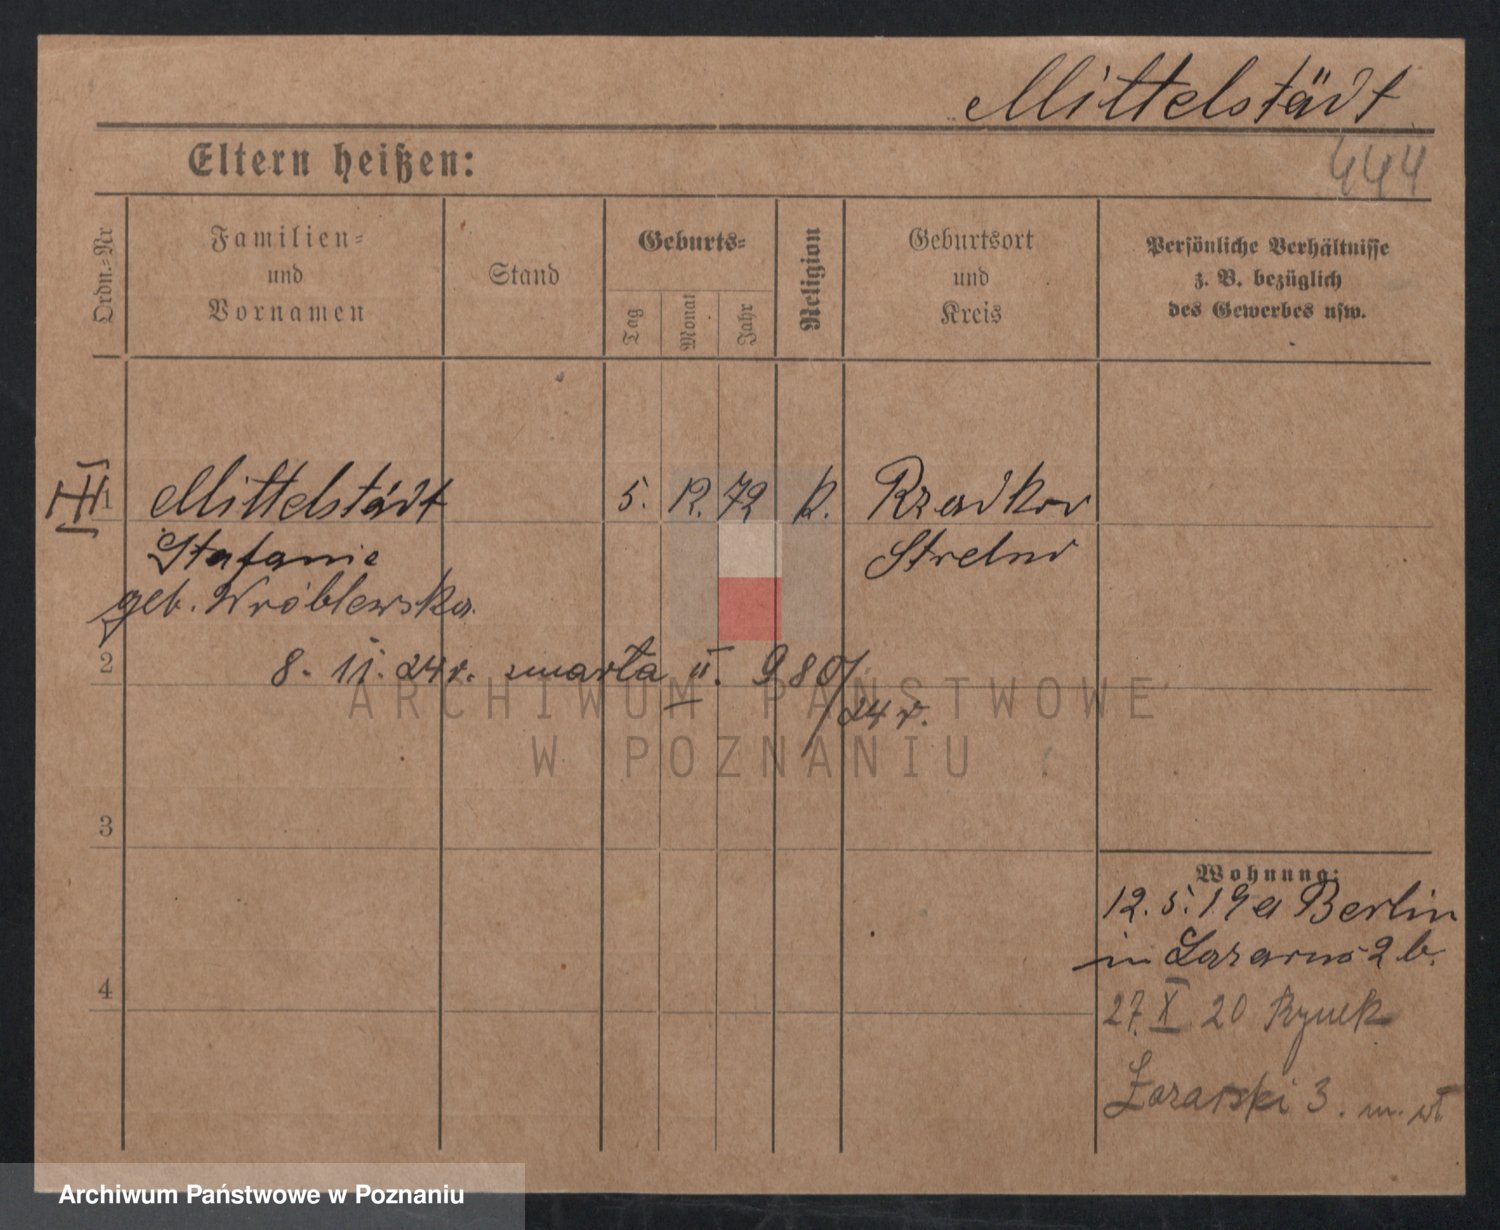 Mittelstädt
Eltern heißen:
444
Ordn.-Nr
Familien-
und
Vornamen
Stand
Geburts-
Tag
Monat
Jahr
Religion
Geburtsort
und
Kreis
Persönliche Verhältnisse
z. B. bezüglich
des Gewerbes usw.
1 Mittelstädt 5. 12. 72 k. Rzadkov
Stefanie Strelno
geb. Wróblewska
2
8. 11. 24 r. zmarła u. 980/
24 r.
ARCHIWUM PAŃSTWOWE
W POZNANIU
3
Wohnung:
12. 5. 19 a Berlin
in Lazarus 2 b.
4
27. X 20 Rynek
Łazarski 3. m. wł
Archiwum Państwowe w Poznaniu